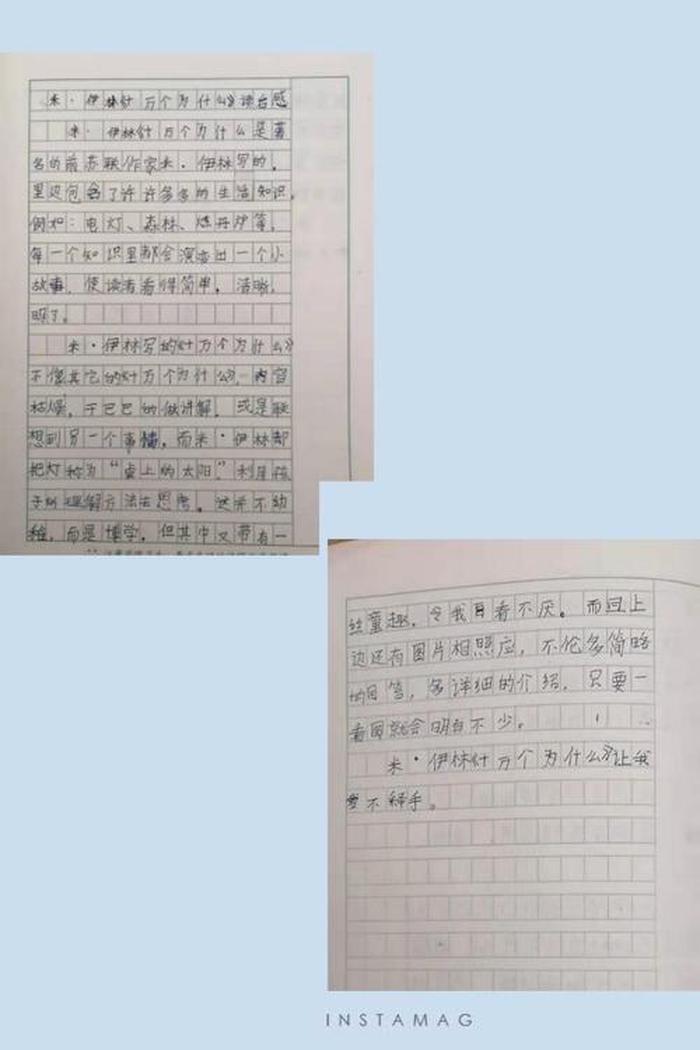 米·伊林《十万个为什么》读后感
米·伊林《十万个为什么是著
名的前苏联作家米·伊林写的,
里边包含了许许多多的生活知识。
例如:电灯、森林、炉等,
每一个知识里都会演变出一个小
故事,使读者看得简单,清晰,
明了。
米·伊林写的《十万个为什么》
不像其它的《十万个为什么》,内容
枯燥,干巴巴的做讲解,或是联
想到另一个事情,而米·伊林却
把灯称为“桌上的太阳”,利用孩
子们理解方法去思考。这并不幼
稚,而是博学,但其中又带有一
丝童趣,令我百看不厌。而回上
边还有图片相照应,不伦多简略
的回答,多详细的介绍,只要一
看图就会明白不少。
米·伊林《十万个为什么》让我
爱不释手。
INSTAMAG